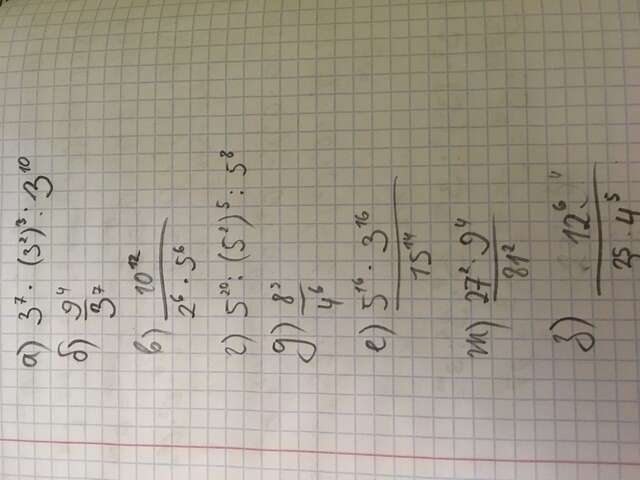 а) 3⁷ · (3²)³ : 3¹⁰
б) 9⁴/3⁷
в) 10¹²/2⁶ · 5⁶
г) 5²⁰ : (5²)⁵ : 5⁸
д) 8³/4⁶
е) 5¹⁶ · 3¹⁶/15¹⁴
ж) 27² · 9⁴/81²
з) 12⁶/35 · 4⁵